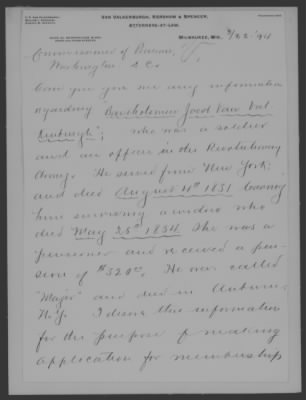 VAN VALKENBURGH, KERSHAW & SPENCER,
ATTORNEYS-AT-LAW.
MILWAUKEE, WIS.
Commissioner of Pensions,
Washington D Co
Can you give me any information
regarding "Bartholomew Joost Van Val
kenburgh"; who was a soldier
and an officer in the Revolutionary
Army. He served from "New York"
and died August 11th 1831 leaving
him surviving a widow who
died May 25th 1854. She was a
pensioner and received a pen-
sion of $320.00. He was called
"Major" and died in Auburn
N.Y. I desire this information
for the purpose of making
application for membership